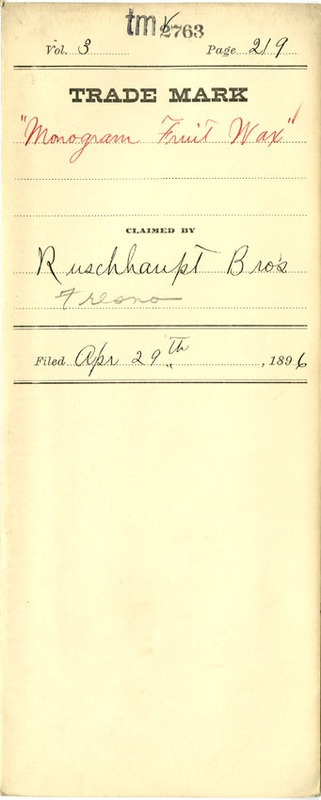 tm 2763
Vol. 3 Page 219
TRADE MARK
"Monogram Fruit Wax"
CLAIMED BY
Ruschhaupt Bro's
Fresno
Filed Apr 29th, 1896